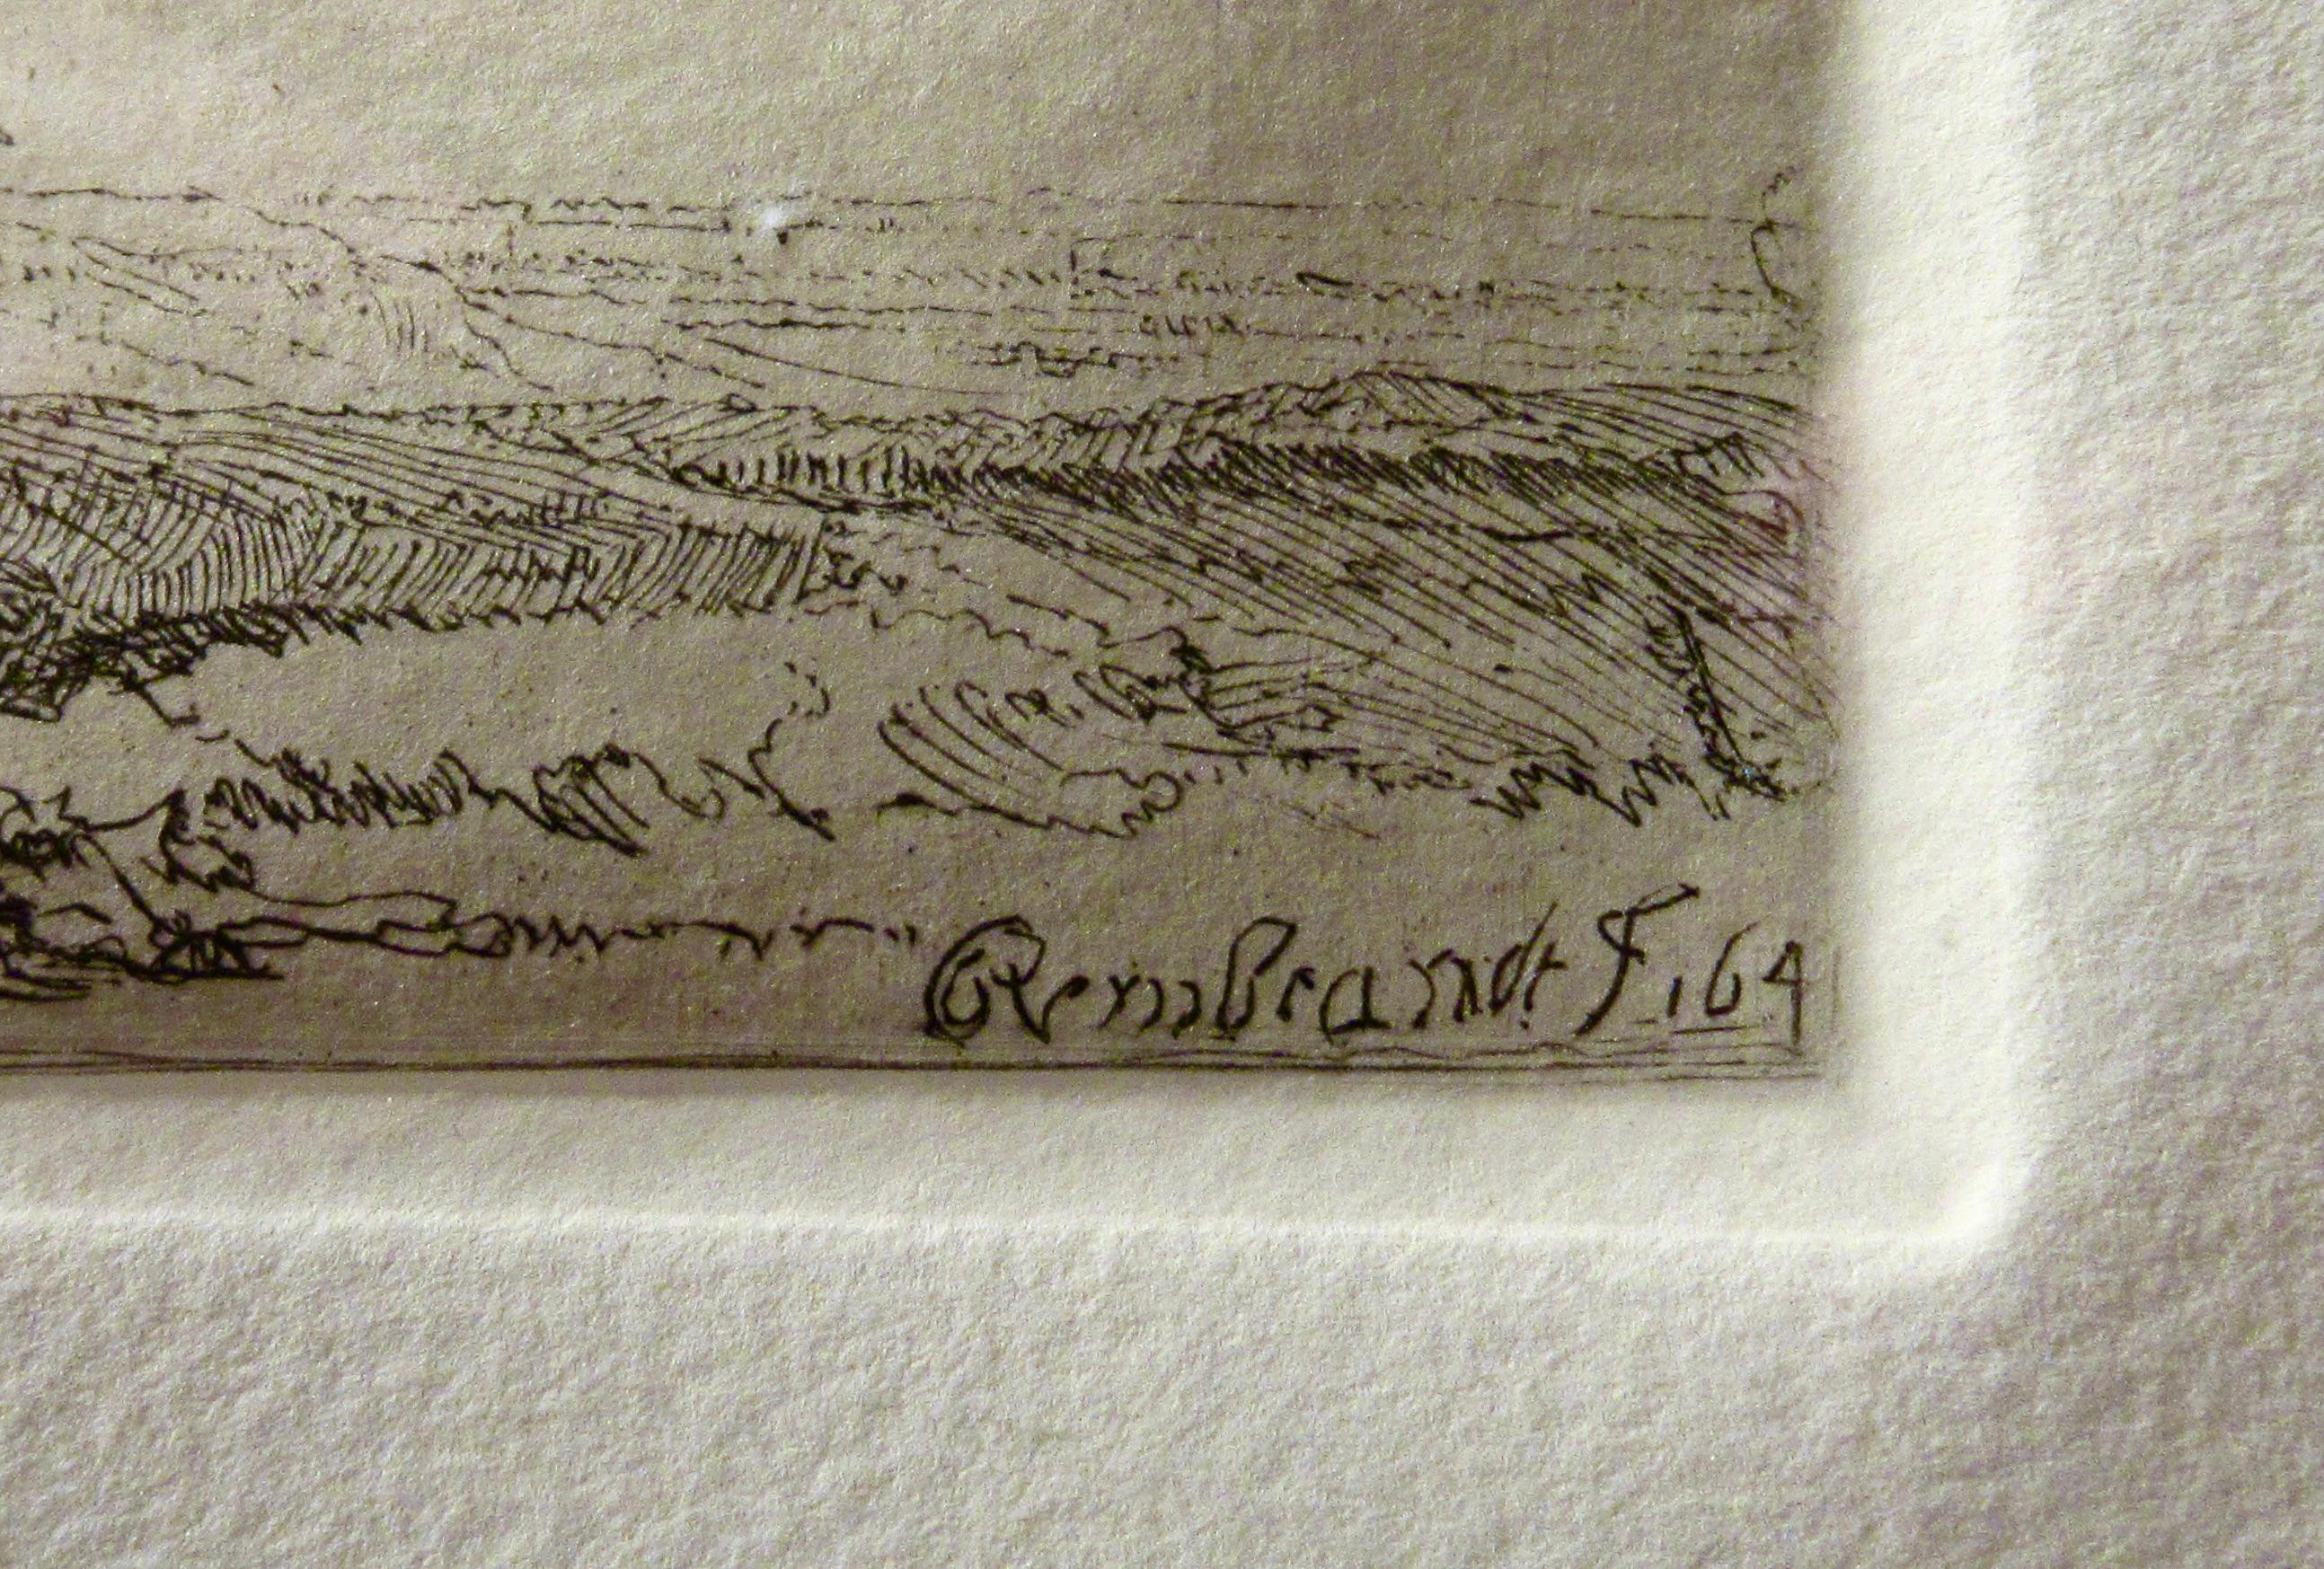 Rembrandt F. 164